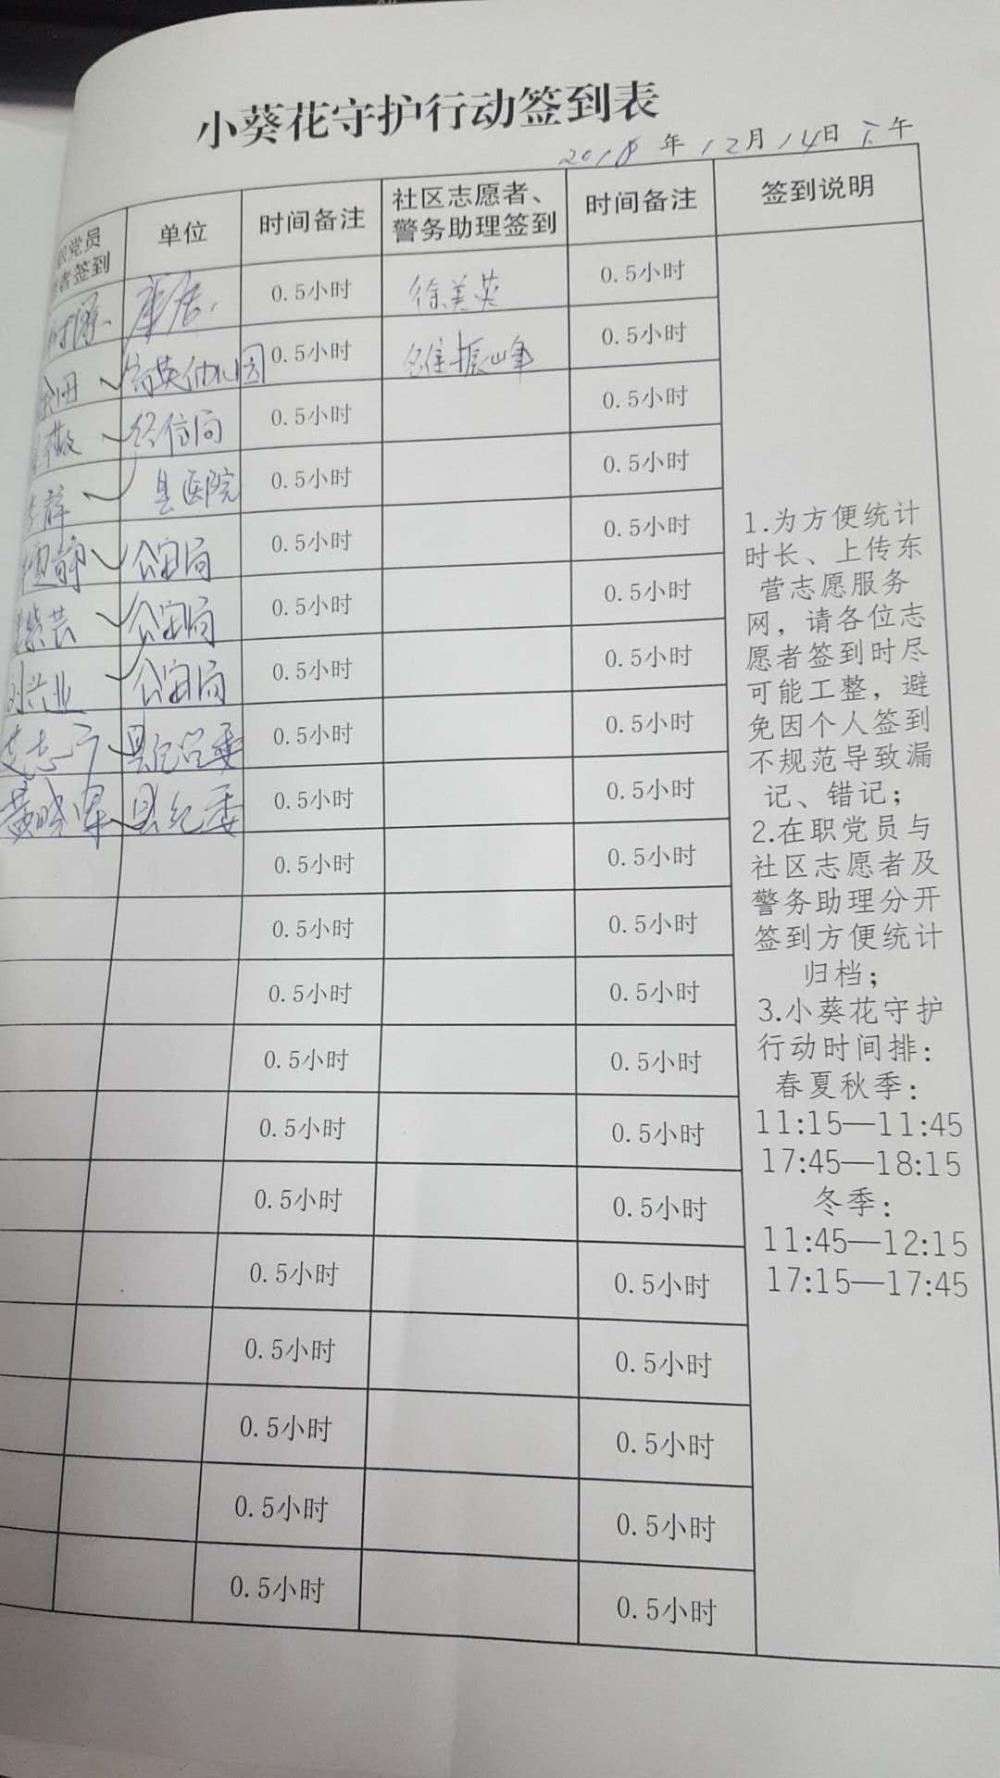 小葵花守护行动签到表
2018年12月14日下午
职党员
者签到
单位
时间备注
社区志愿者、
警务助理签到
时间备注
签到说明
0.5小时 徐美英 0.5小时
0.5小时 雒振峰 0.5小时
经信局 0.5小时 0.5小时
县医院 0.5小时 0.5小时
公安局 0.5小时 0.5小时
公安局 0.5小时 0.5小时
刘兴业 公安局 0.5小时 0.5小时
志 0.5小时 0.5小时
黄晓军 县纪委 0.5小时 0.5小时
0.5小时 0.5小时
0.5小时 0.5小时
0.5小时 0.5小时
0.5小时 0.5小时
0.5小时 0.5小时
0.5小时 0.5小时
0.5小时 0.5小时
0.5小时 0.5小时
0.5小时 0.5小时
0.5小时 0.5小时
0.5小时 0.5小时
1.为方便统计
时长、上传东
营志愿服务
网，请各位志
愿者签到时尽
可能工整，避
免因个人签到
不规范导致漏
记、错记；
2.在职党员与
社区志愿者及
警务助理分开
签到方便统计
归档；
3.小葵花守护
行动时间排：
春夏秋季：
11:15—11:45
17:45—18:15
冬季：
11:45—12:15
17:15—17:45